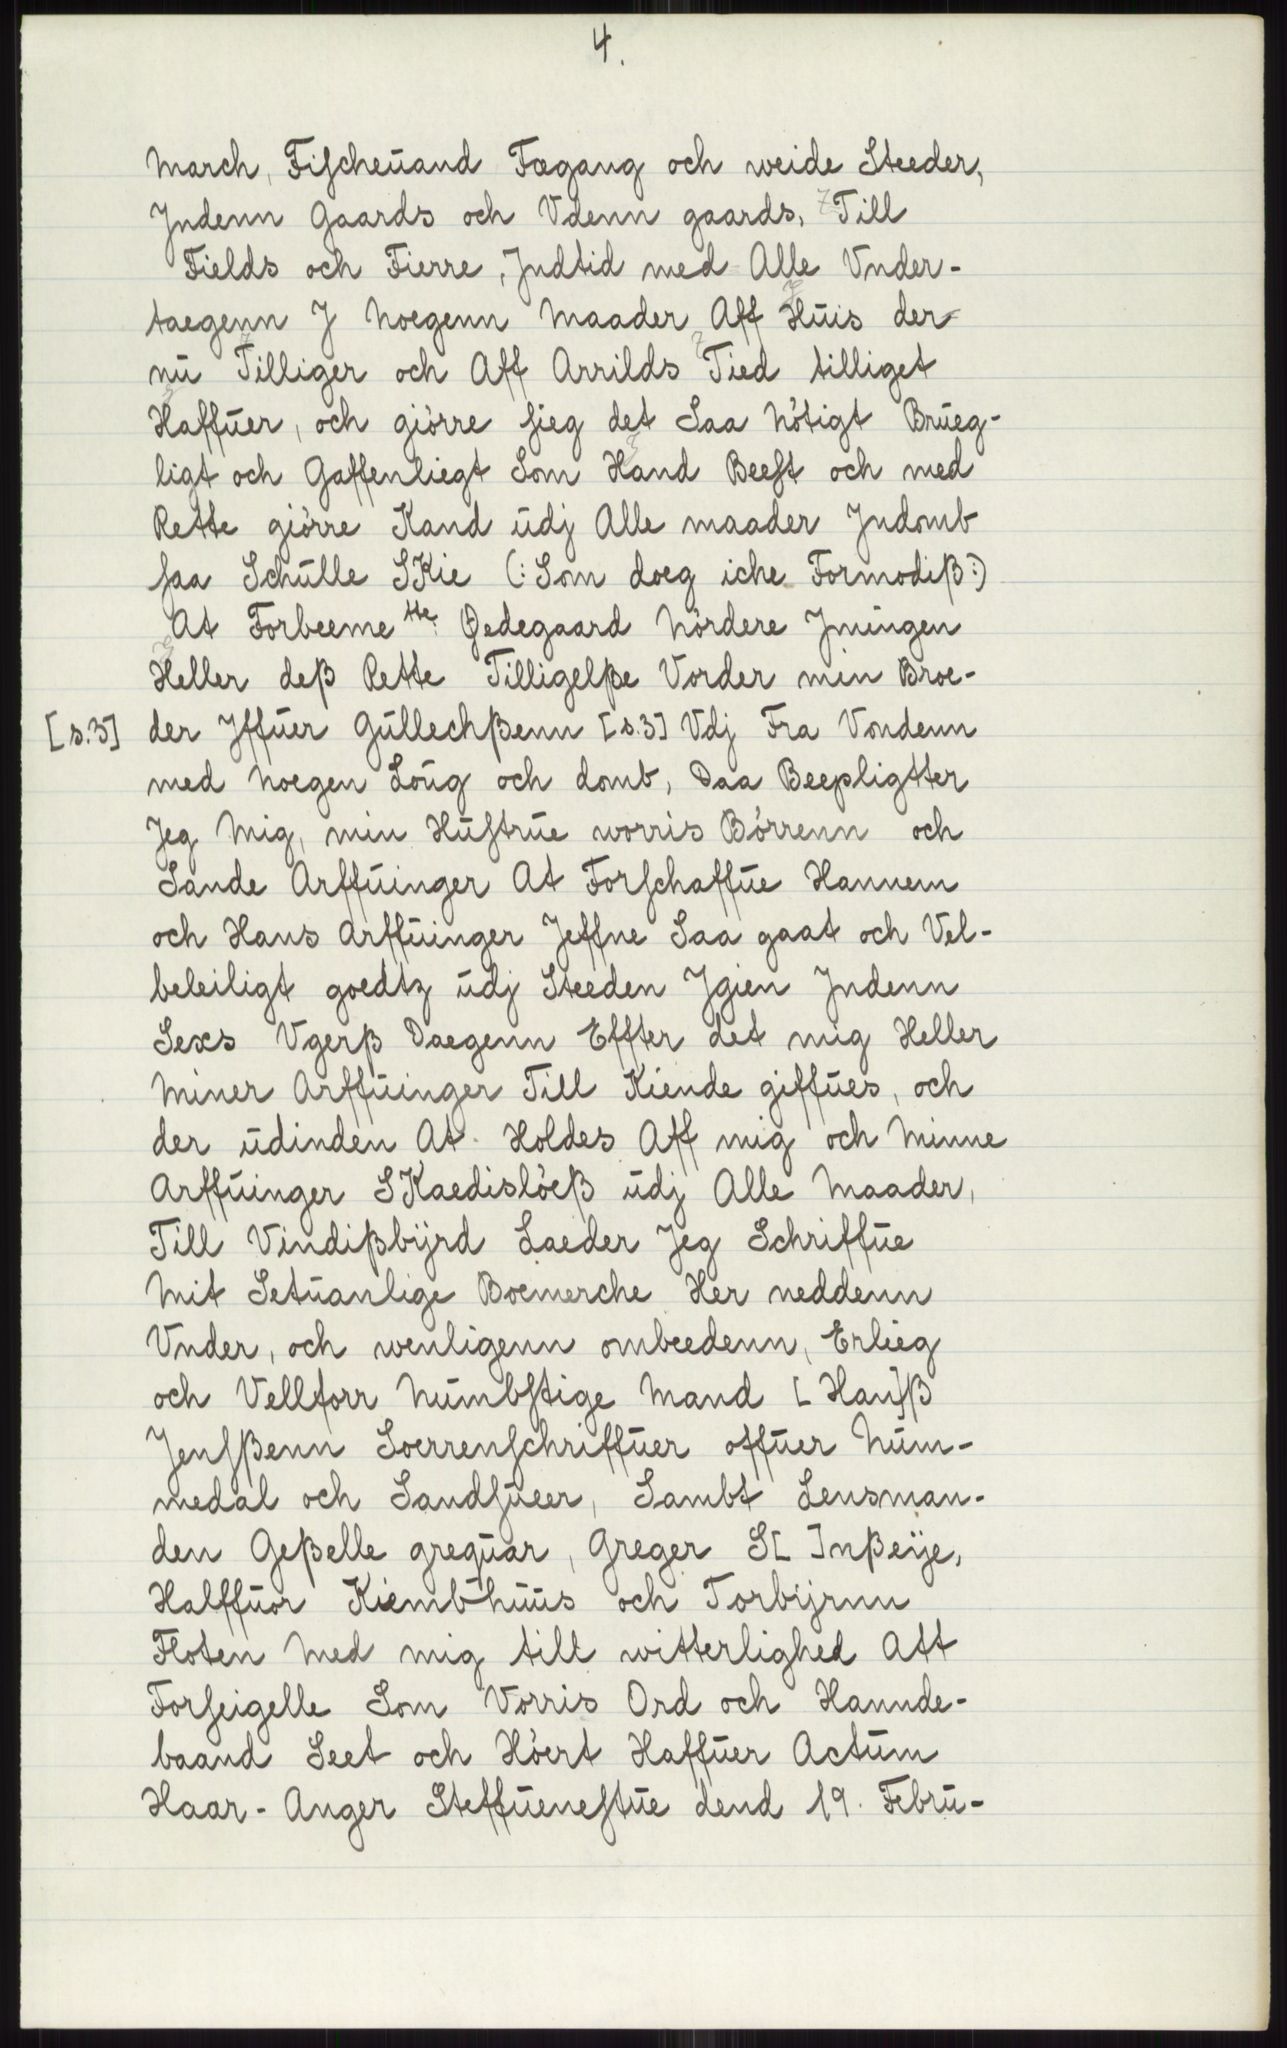 4.
March, Fischeuand Fægang och weide Steeder,
Jndenn Gaards och Vdenn gaards, Till
Fields och Fierre, Jndtid med Alle Vnder-
taegenn J Noegenn Maader Aff Huis der
nu Tilliger och Aff Arrilds Tied tilliget
Haffuer, och giörre sieg det Saa Nötigt Brueg-
ligt och Gaffenliegt Som Hand Beest och med
Rette giörre Kand udj Alle maader Jndomb
saa Schulle SKie (: Som doeg iche Formodiß :)
At Forbeeme te Ødegaard Nördere Jmingen
Heller deß Rette Tilligelße Vorder min Broe-
[s.3] der Jffuer Gullechßenn [s.3] Vdj Fra Vondenn
med Noegen Loug och domb, Daa Beepligtter
Jeg Mig, min Hustrue worris Börrenn och
Sande Arffuinger At Forschaffue Hannem
och Hans Arffuinger Jeffne Saa gaat och Vel-
beleiligt goedtz udj Steeden Jgien Jndenn
Sexs Vgerß Daegenn Effter det mig Heller
Miner Arffuinger Till Kiende giffues, och
der udinden At Holdes Aff mig och Minne
Arffuinger SKaedislöeß udj Alle Maader,
Till Vindißbÿrd Laeder Jeg Schriffue
Mit Setuanlige Boemerche Her neddenn
Vnder, och wenligenn ombeedenn, Erlieg
och Vellforr Numbstige Mand [Han]ß
Jensßenn Soerrenschriffuer offuer Num-
medal och Sandsueer, Sambt Lensman-
den Geßelle grequar, Greger S[ ]nßeÿe,
Halffuor Kiembhuus och Torbÿrnn
Floten Med mig till witterlighed Att
Forseigelle Som Vorris Ord och Hannde-
baand Seet och Höert Haffuer Actum
Haar-Anger Steffuenestue dend 19. Febru-